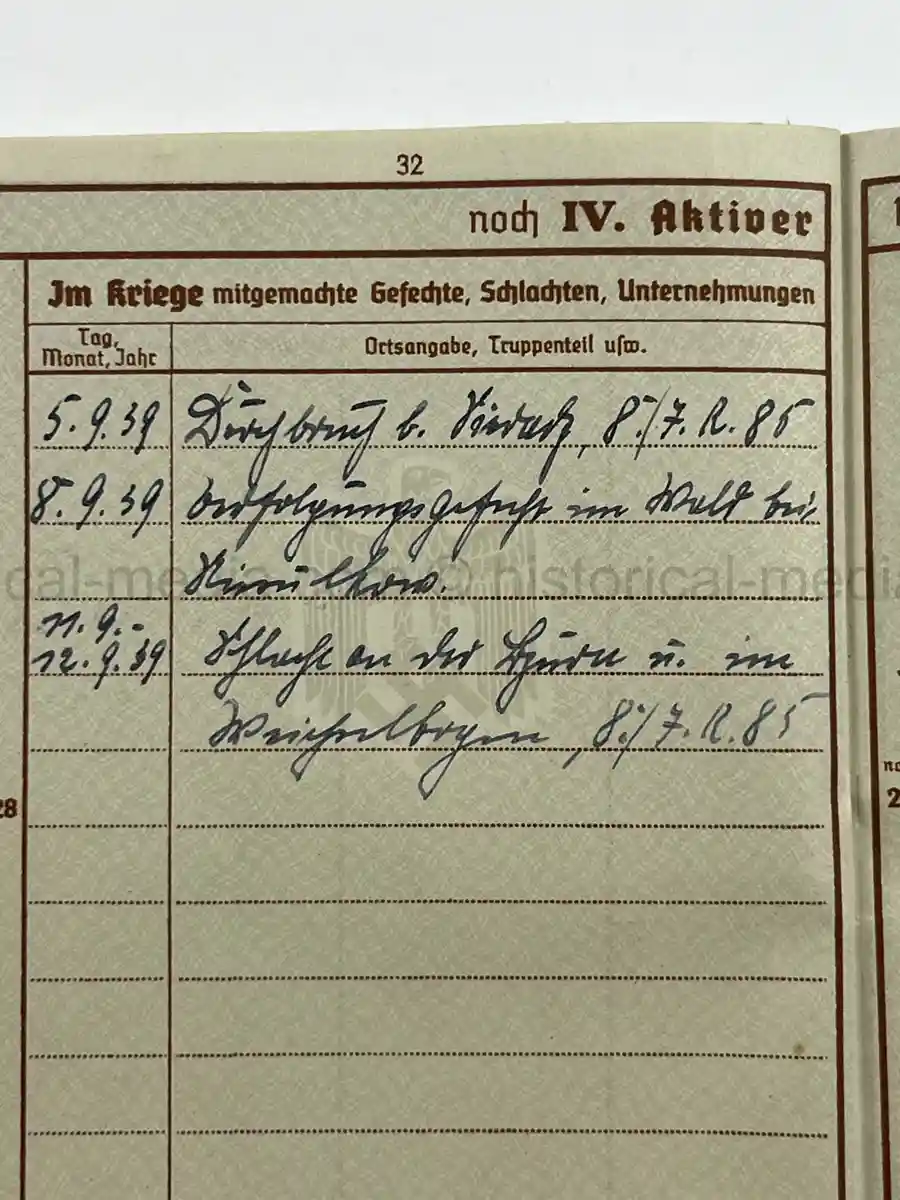 32
noch IV. Aktiver
Im Kriege mitgemachte Gefechte, Schlachten, Unternehmungen
Tag,
Monat, Jahr
Ortsangabe, Truppenteil usw.
5.9.39 Durchbruch b. 8./J.R.85
8.9.39 Verfolgungsgefecht im Wald bei
historical-media
11.9.-
12.9.39 Schlacht an der Bzura u. im
Weichselbogen, 8./J.R.85
28